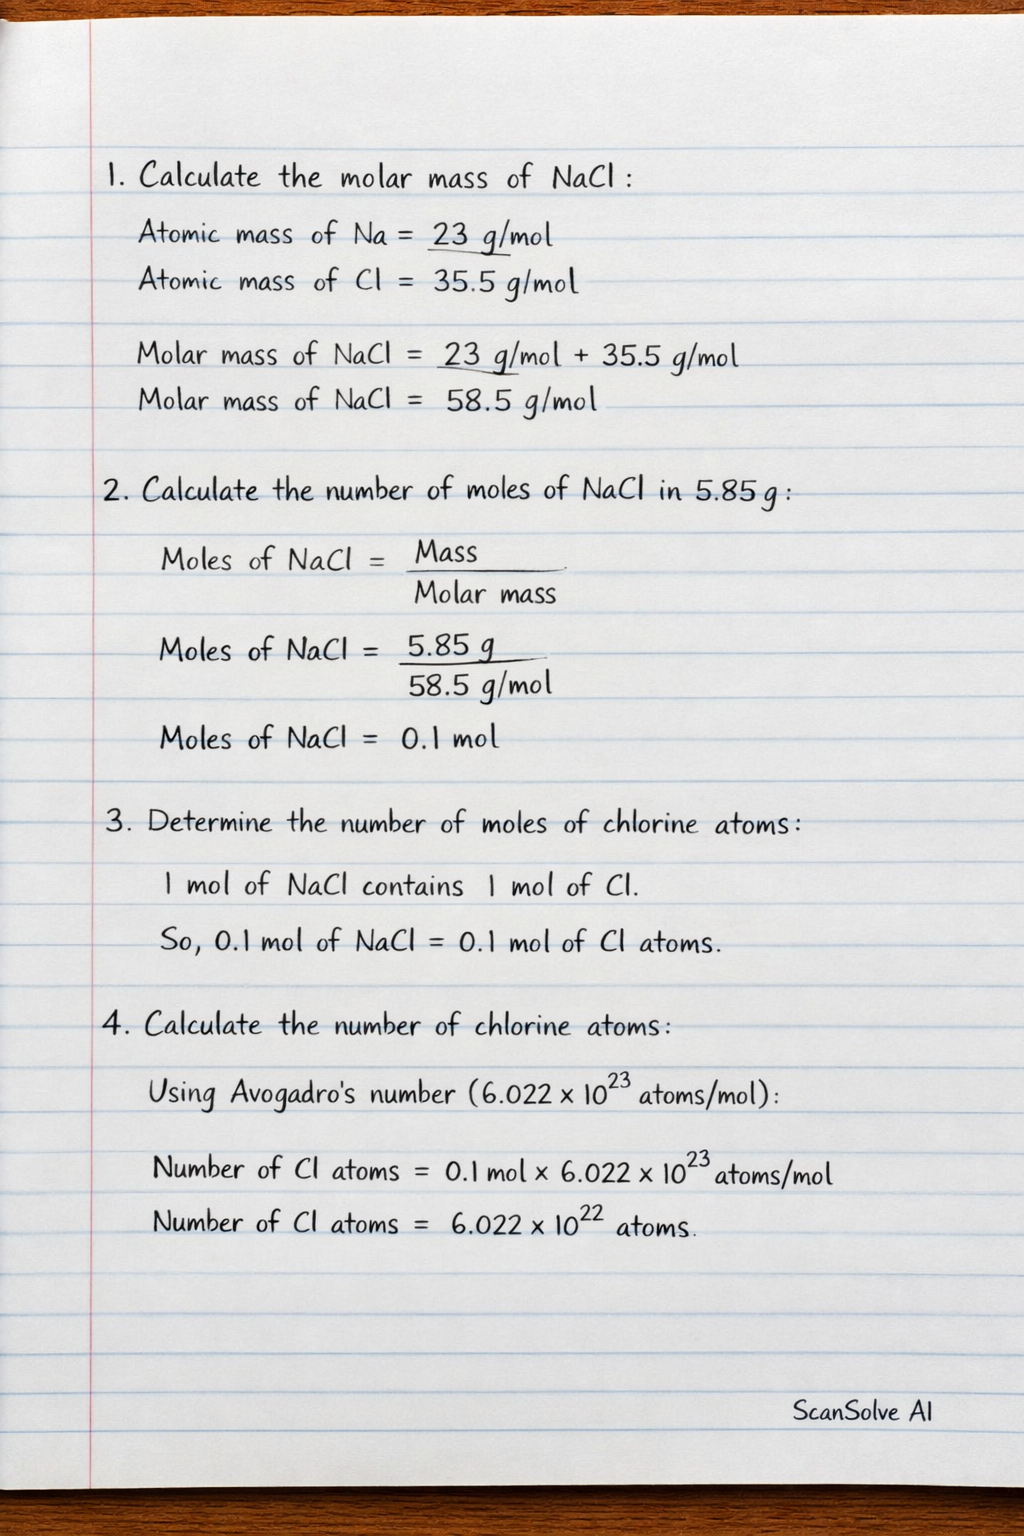 1. Calculate the molar mass of NaCl:
Atomic mass of Na = 23 g/mol
Atomic mass of Cl = 35.5 g/mol
Molar mass of NaCl = 23 g/mol + 35.5 g/mol
Molar mass of NaCl = 58.5 g/mol
2. Calculate the number of moles of NaCl in 5.85 g:
Moles of NaCl = Mass
Molar mass
Moles of NaCl = 5.85 g
58.5 g/mol
Moles of NaCl = 0.1 mol
3. Determine the number of moles of chlorine atoms:
1 mol of NaCl contains 1 mol of Cl.
So, 0.1 mol of NaCl = 0.1 mol of Cl atoms.
4. Calculate the number of chlorine atoms:
Using Avogadro's number (6.022 × 10²³ atoms/mol):
Number of Cl atoms = 0.1 mol × 6.022 × 10²³ atoms/mol
Number of Cl atoms = 6.022 × 10²² atoms.
ScanSolve AI